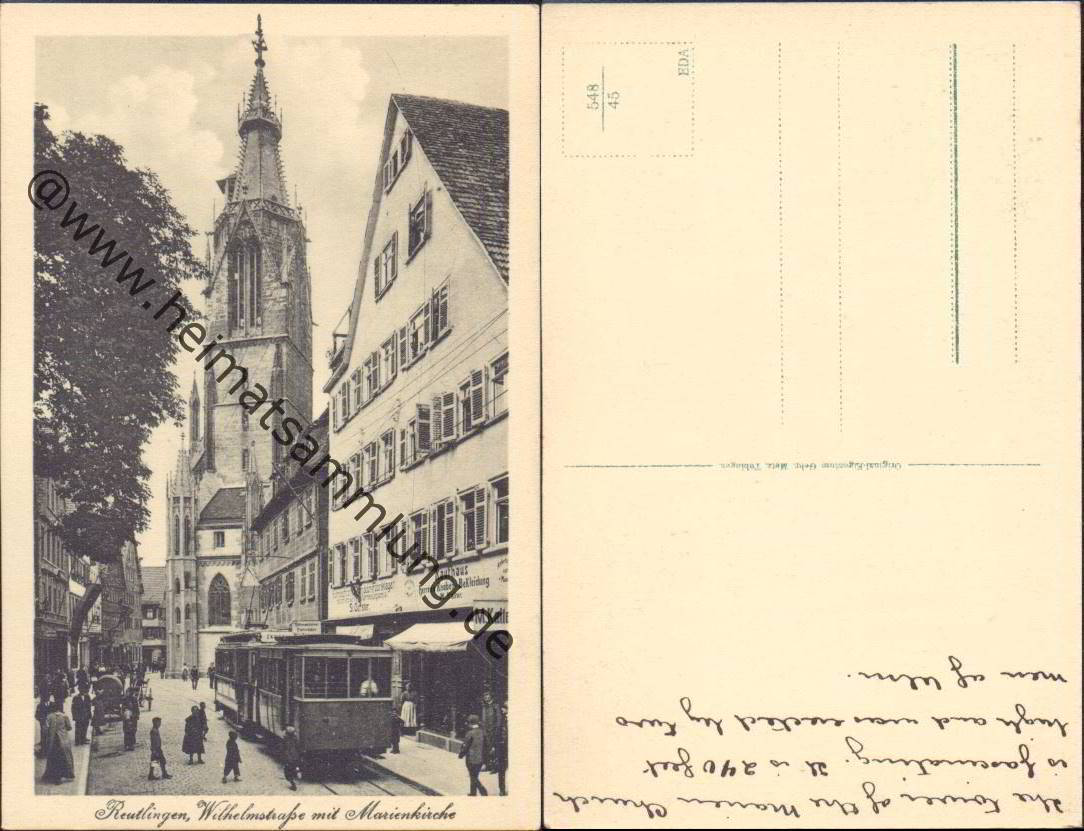 @www.heimatsammlung.de
Kaufhaus
Herren Knaben Bekleidung
S. Gerster
M. Kell
Reutlingen, Wilhelmstraße mit Marienkirche
548
45
EDA
Original-Eigentum Gebr. Metz, Tübingen
The tower of the Marien Church
is fascinating. It is 240 feet
high and was erected by two
men of Ulm.